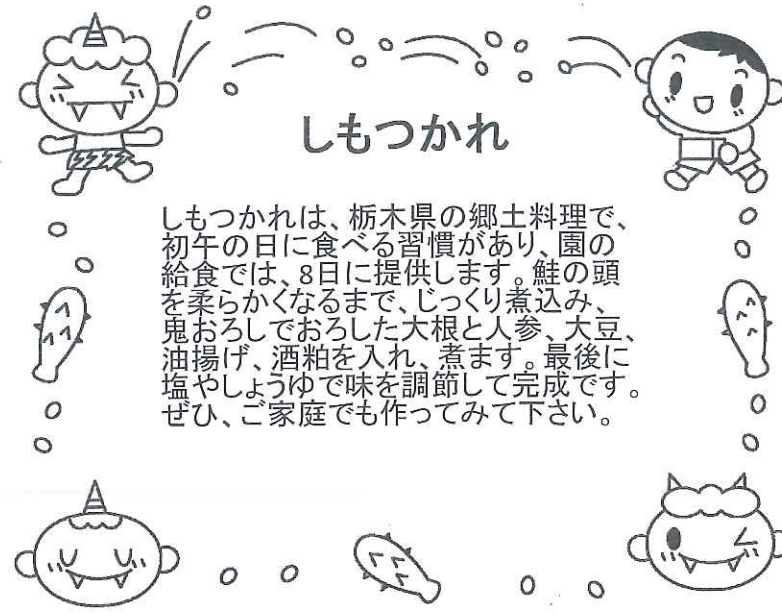 しもつかれ
しもつかれは、栃木県の郷土料理で、
初午の日に食べる習慣があり、園の
給食では、8日に提供します。鮭の頭
を柔らかくなるまで、じっくり煮込み、
鬼おろしでおろした大根と人参、大豆、
油揚げ、酒粕を入れ、煮ます。最後に
塩やしょうゆで味を調節して完成です。
ぜひ、ご家庭でも作ってみて下さい。